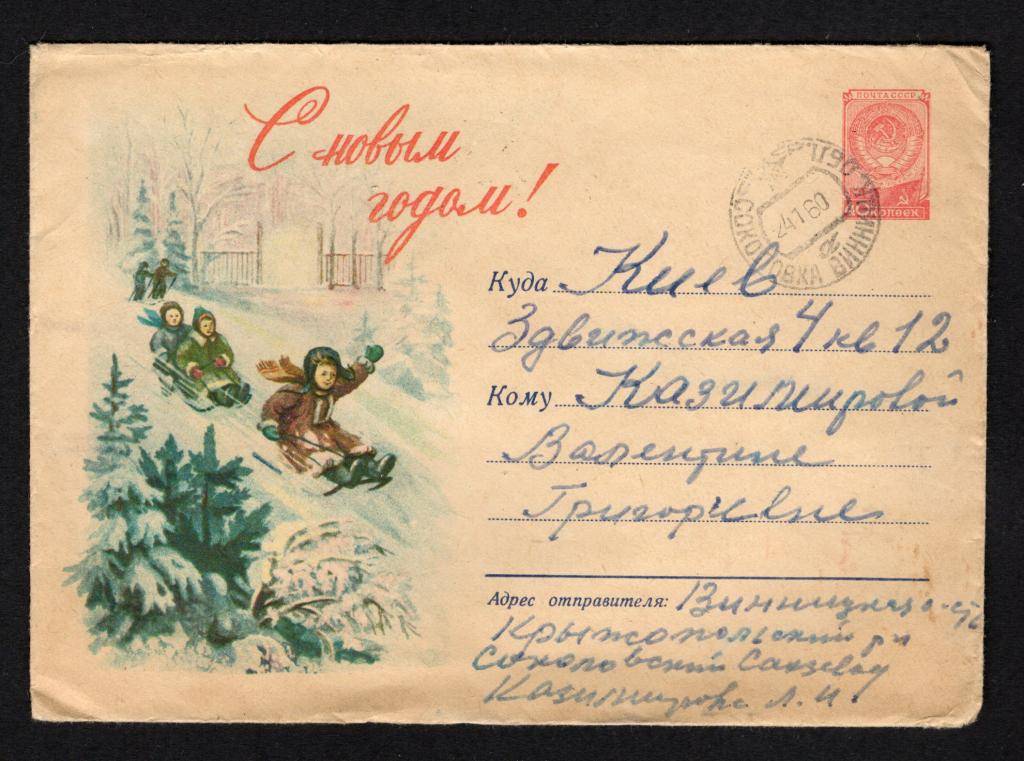 С новым
годом!
ПОЧТА СССР
40 копеек
СОКОЛОВКА ВИННИЦК. ОБЛ.
24 1 60
Куда Киев
Здвижсская 4 кв 12
Кому Казимировой
Валентине
Григоревне
Адрес отправителя: Винницкая о-сть
Крыжопольский р-н
Соколовский Сахзавод
Казимирова Л. И.